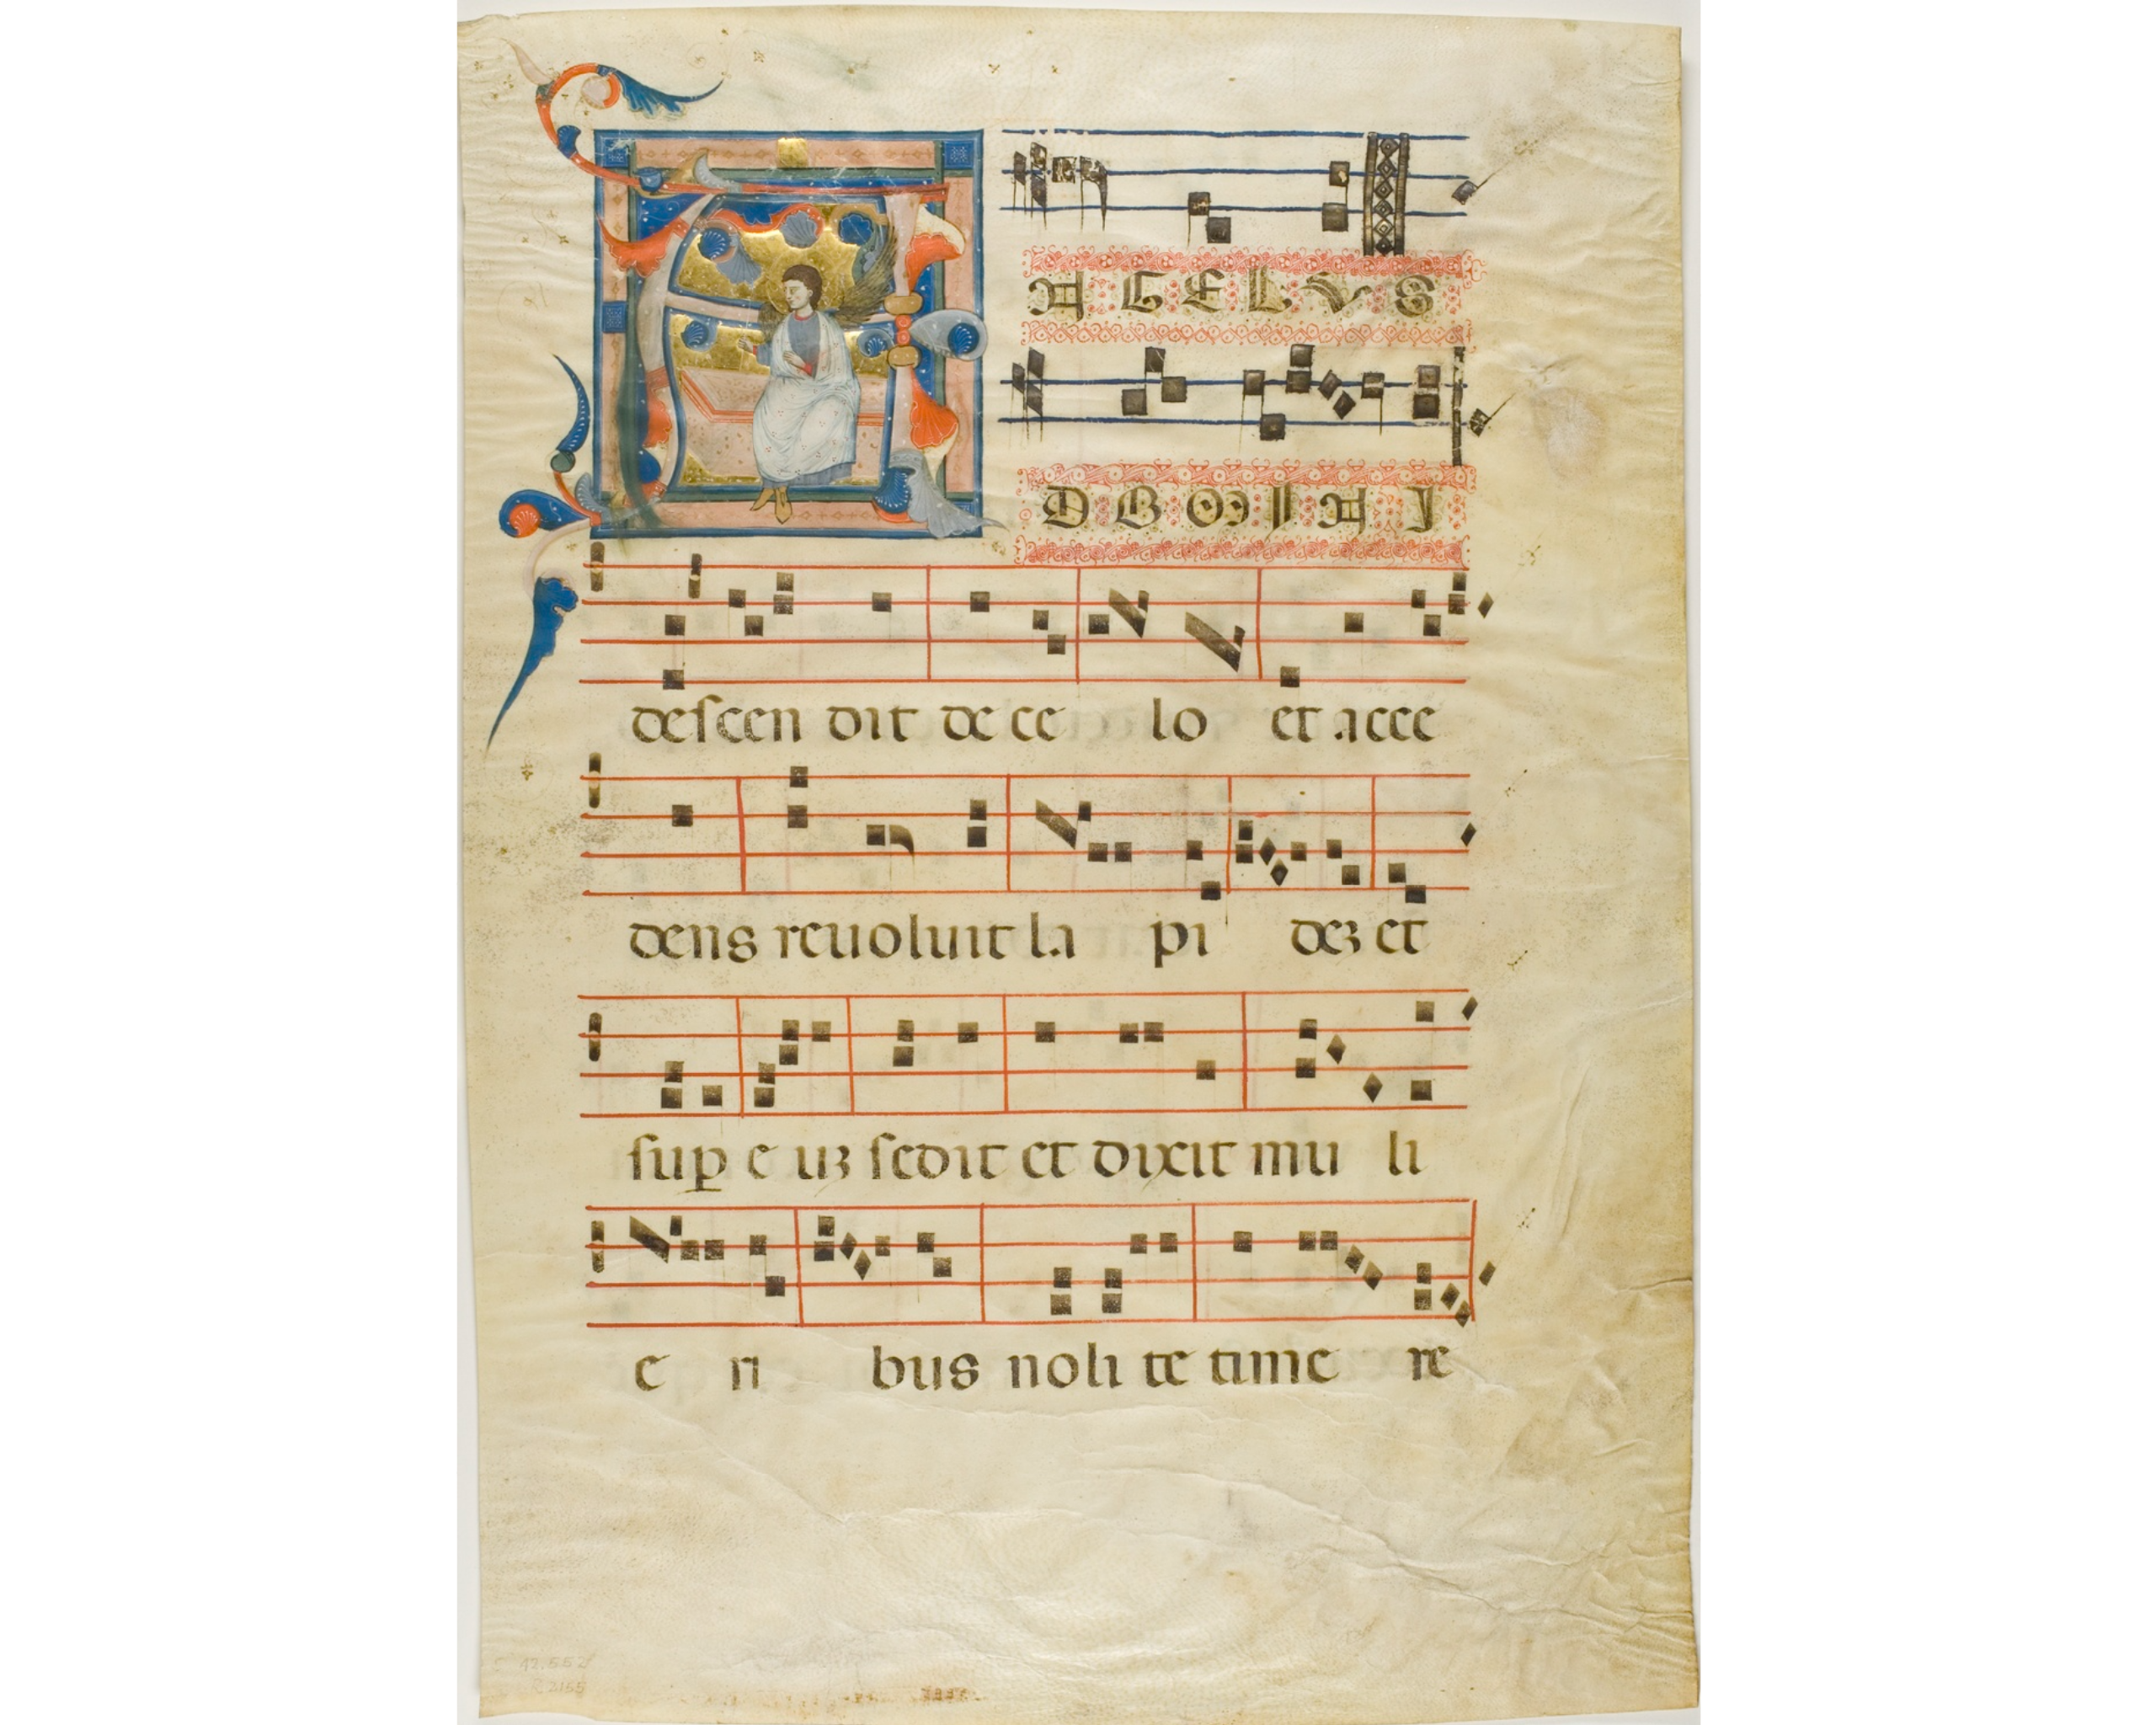 ANGELVS
DOMINI
descen dit de ce lo et acce
dens reuoluit la pi deȝ et
suꝑ e uȝ sedit et dixit mu li
e ri bus noli te time re
12.552
R2155